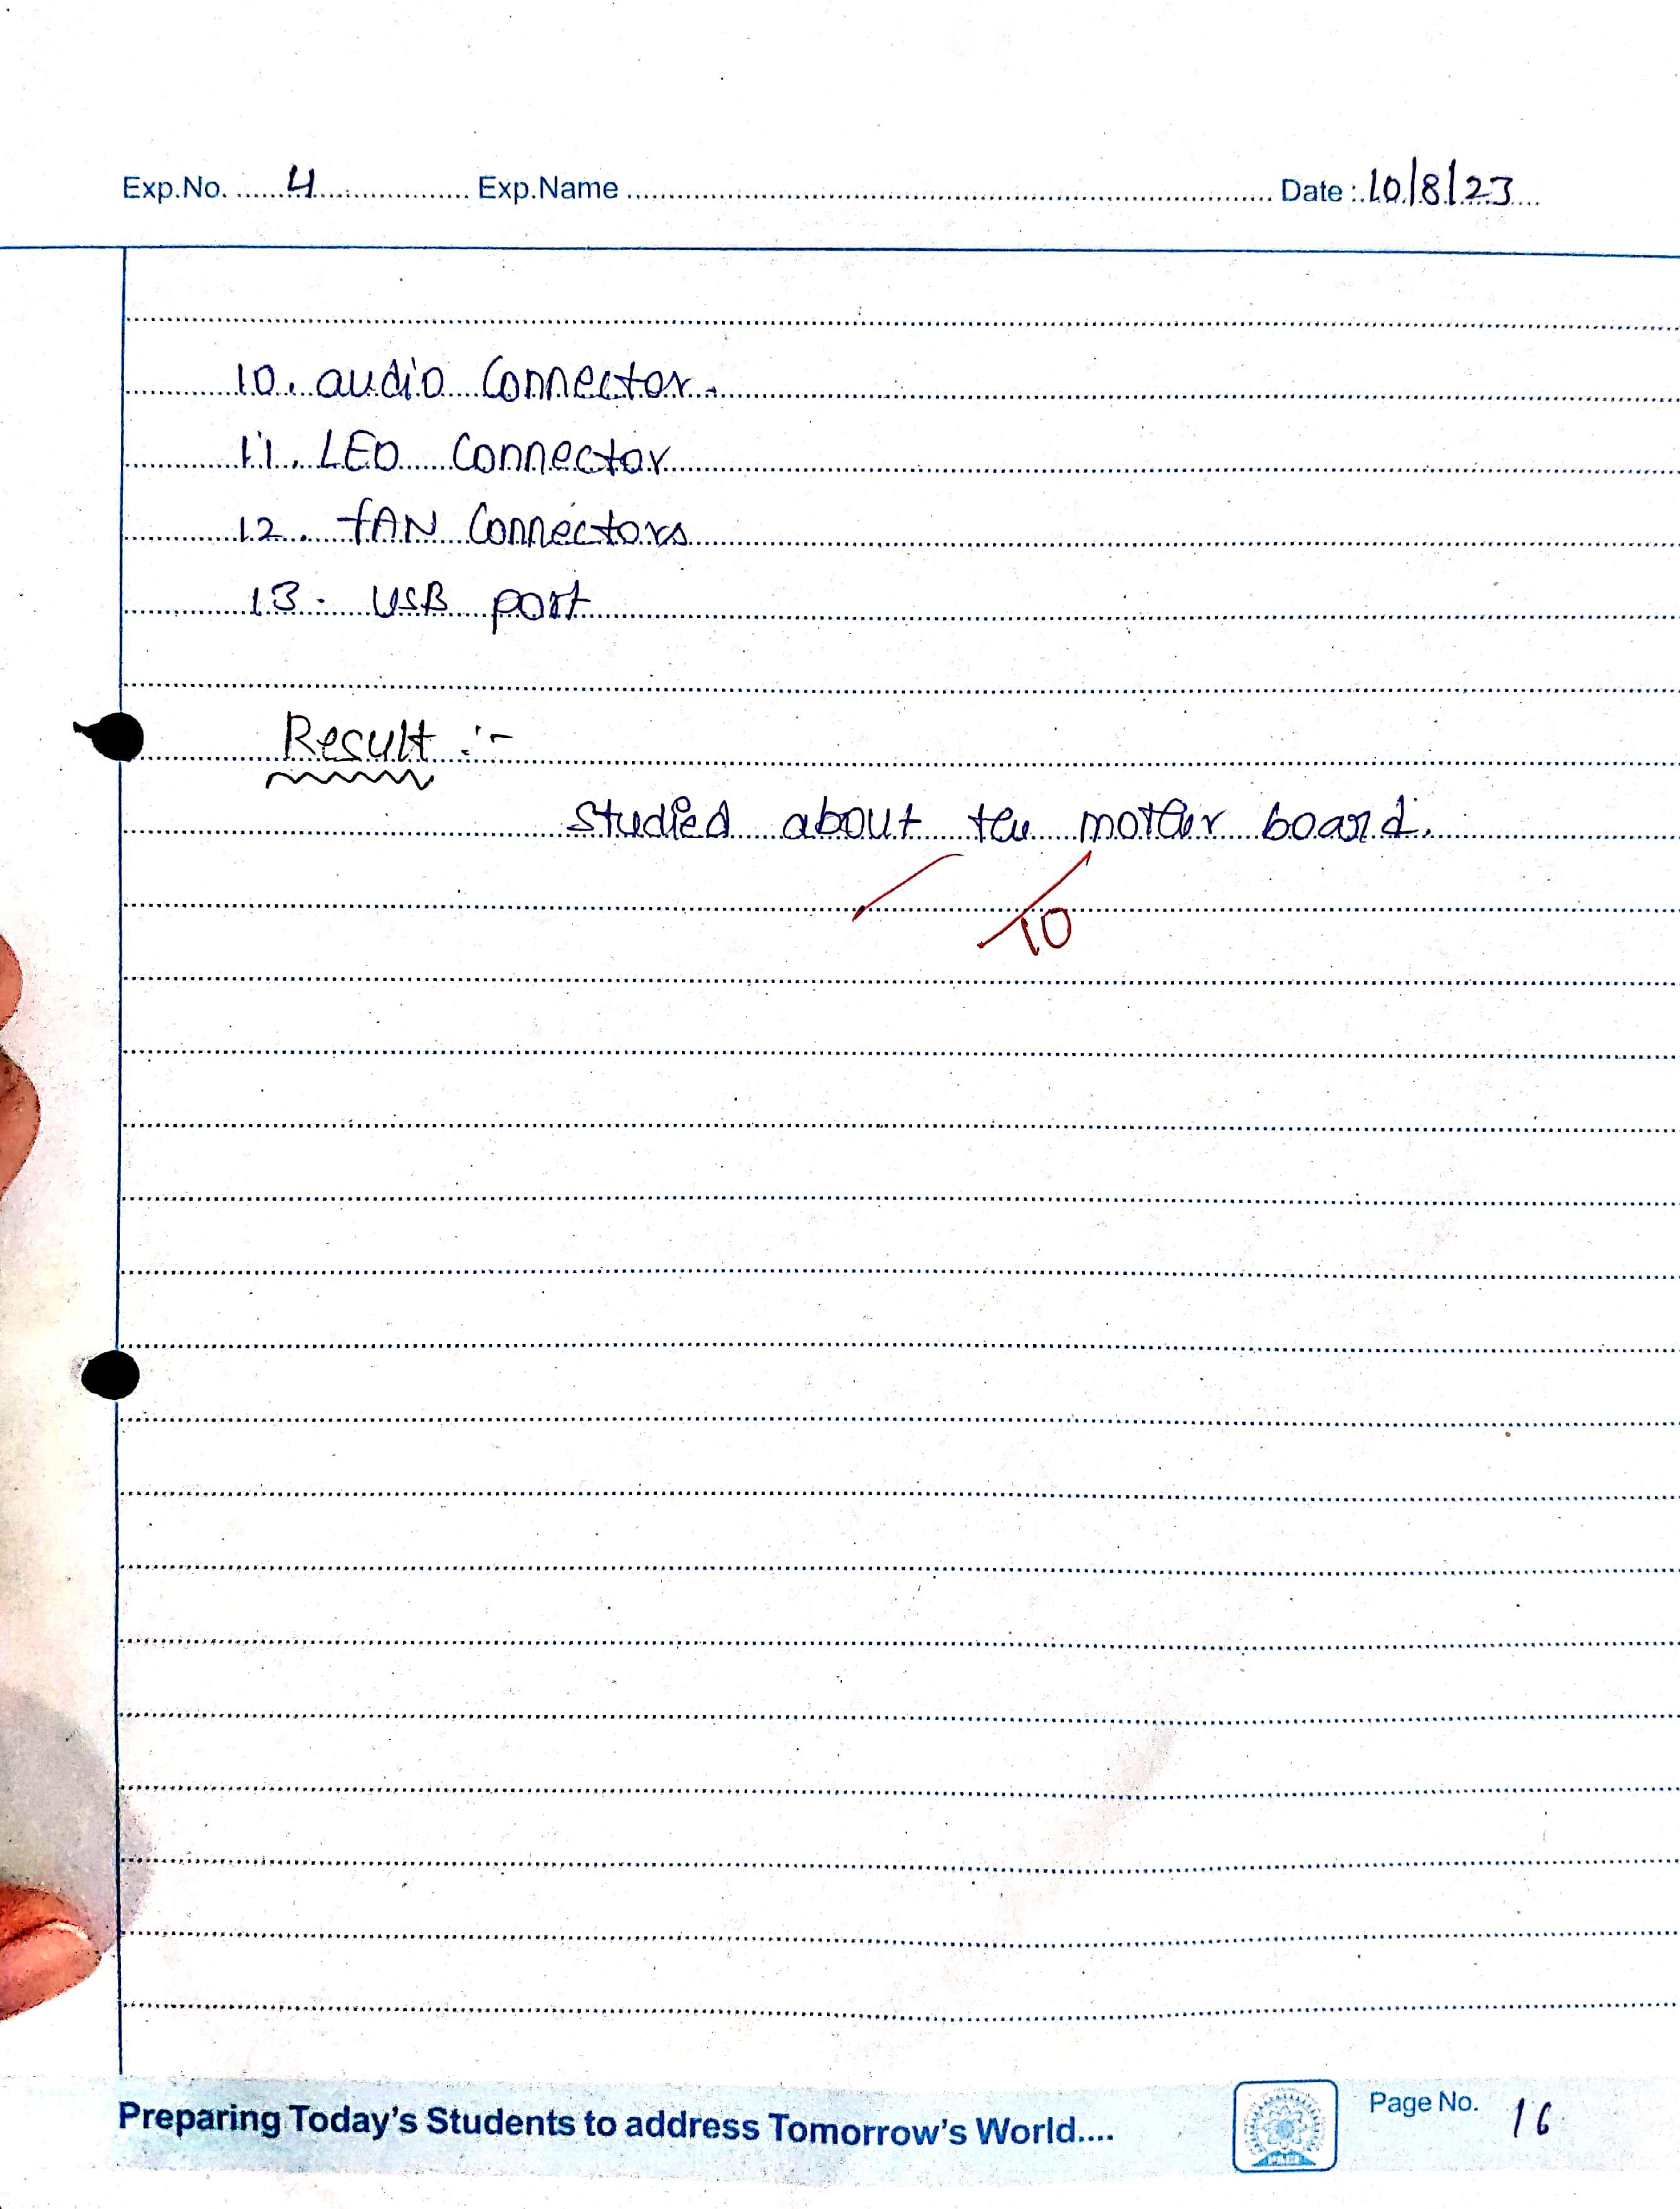 Exp.No. 4 Exp.Name Date : 10/8/23
10. audio Connector.
11. LED Connector
12. fAN Connectors
13. USB port
Result :-
Studied about the mother board.
10
Preparing Today's Students to address Tomorrow's World....
PACE
Page No. 16